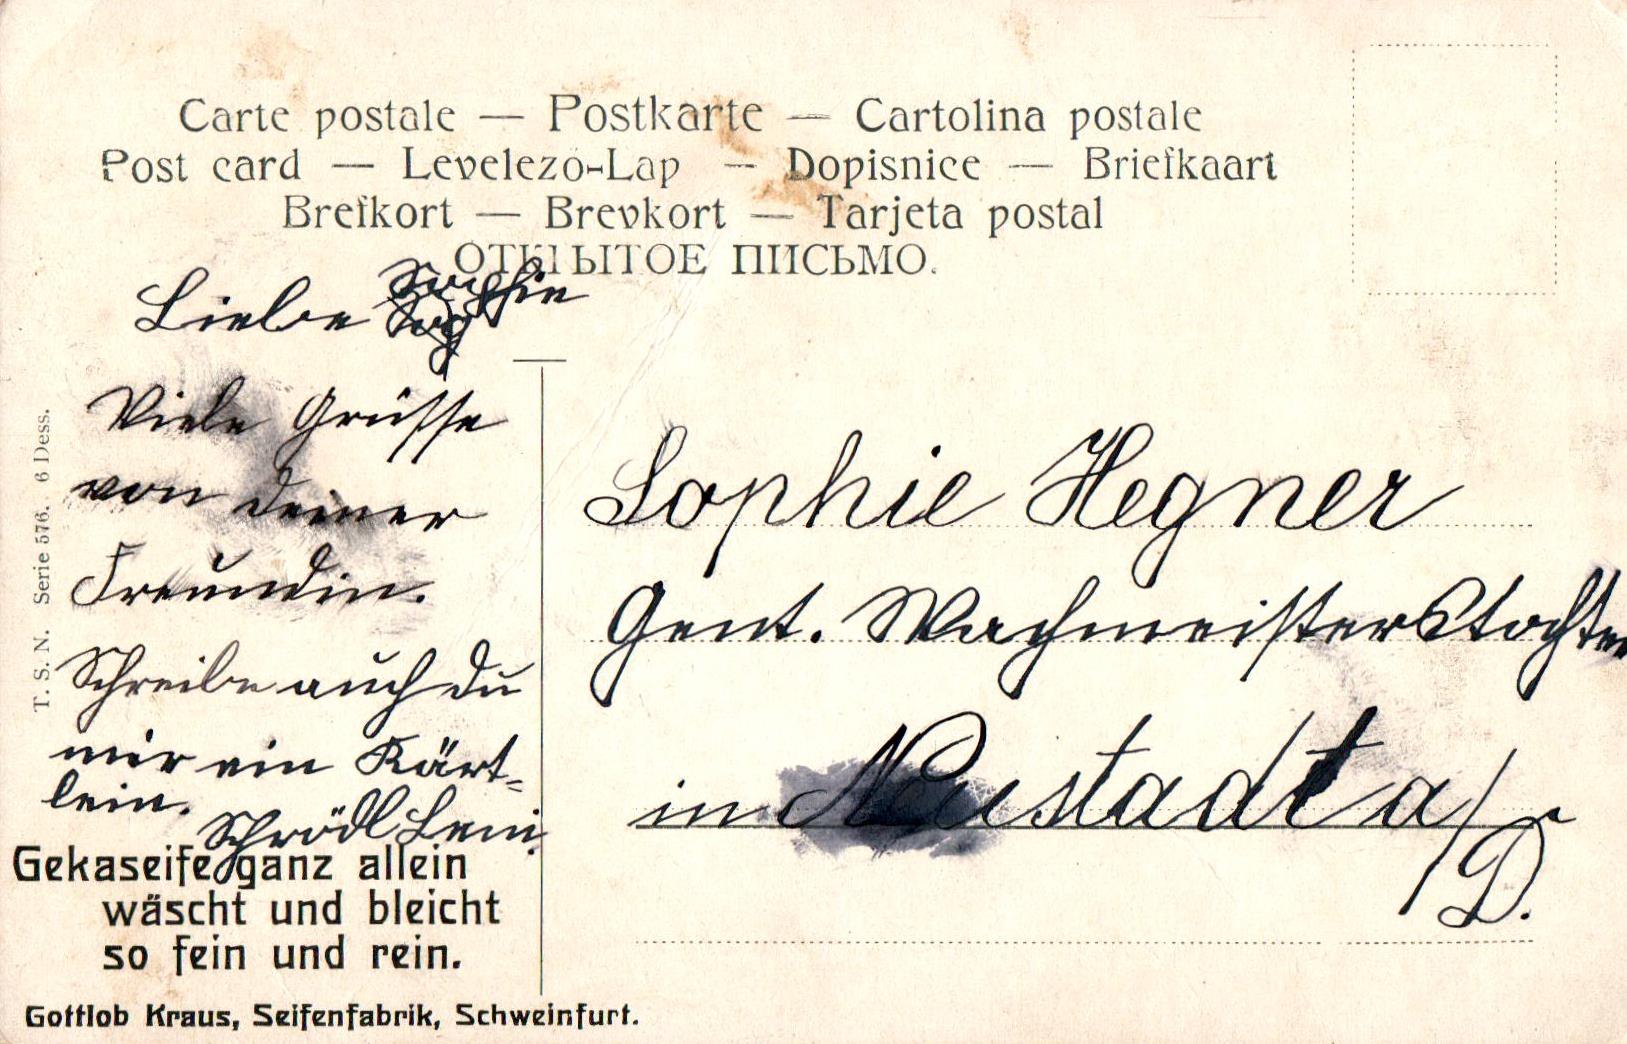 Carte postale — Postkarte — Cartolina postale
Post card — Levelezö-Lap — Dopisnice — Briefkaart
Brefkort — Brevkort — Tarjeta postal
ОТКРЫТОЕ ПИСЬМО.
Liebe Sophie
Viele Grüsse
von deiner
Freundin.
Schreibe auch du
mir ein Kärt-
lein.
Schrödl Leni.
Gekaseife ganz allein
wäscht und bleicht
so fein und rein.
Gottlob Kraus, Seifenfabrik, Schweinfurt.
T. S. N. Serie 576. 6 Dess.
Sophie Hegner
Gent. Wachmeisterstochter
in Neustadt a/
D.